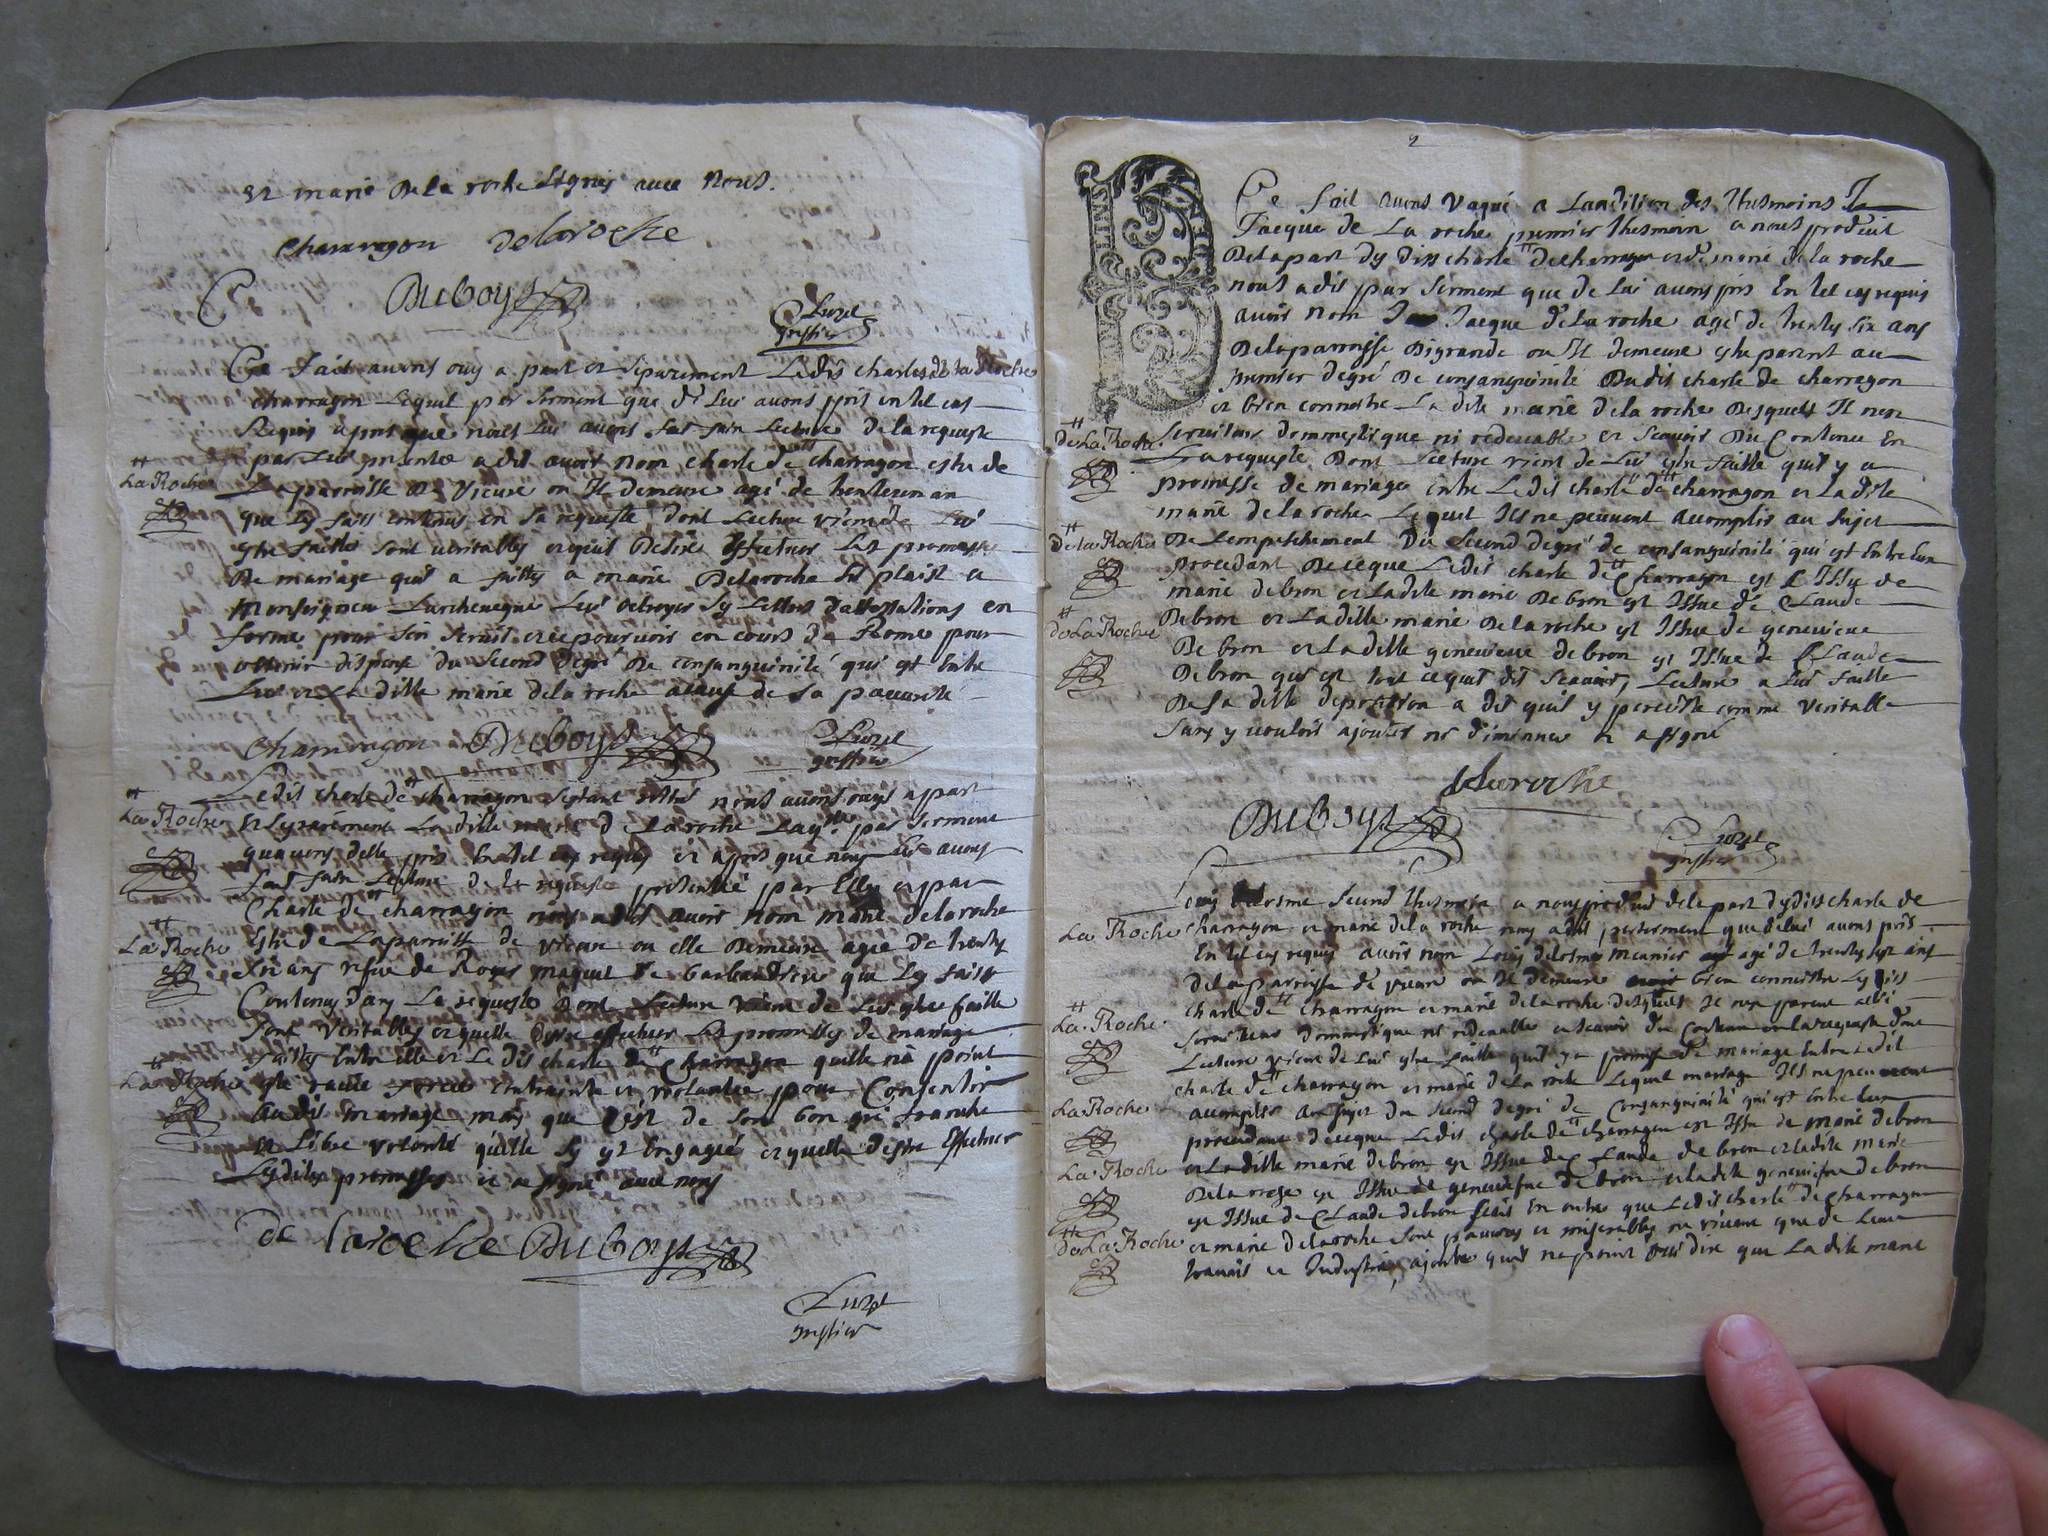 et marie de la roche signés avec nous.
charragon delaroche
Duboys
Luzel
greffier
Ce fait avons ouy a part et separement Ledit charles de la Roche
charragon Lequel par serment que de Lui avons pris en tel cas
Requis apres que nous lui avons fait faire Lecture de la requeste
par Lui presentée a dit avoir nom charle de charragon estre de
La Roche
La parroisse de Vieure ou Il demeure agé de
que Les faits contenus en sa requeste dont Lecture vient de Lui
estre faitte sont veritables et quil desire effectuer Les promesses
De mariage quil a faittes a marie Delaroche sil plaist a
Monseigneur Larcheveque Lui octroyer Ses Lettres dattestations en
forme pour son pourvoir en cours de Rome pour
obtenir dispense du second degré De consanguinité qui est entre
Lui et La ditte marie dela roche acause de sa pauvreté
charragon Duboys Luzel
greffier
Ledit charle de charragon sestant retiré nous avons ouys appart
La Roche
et separément La ditte marie de La roche Laq.lle par serment
quavons delle pris En tel cas requis et apres que nous lui avons
fait faire Lecture de la requeste presentée par Elle et par
Charle de charragon nous a dit avoir nom marie delaroche
La Roche
Estre de Laparroisse de vieure ou elle demeure agée de trente
six ans vefve de que Les faits
Contenus dans La requeste Dont Lecture vient de Lui estre faitte
sont veritables et quelle desire effectuer Les promesses de mariage
faittes Entre elle et Le dit charle de Charragon quelle na point
La Roche
esté ravie forcée contrainte et violantée pour Consentir
Audit mariage mais que Cest de son bon gré franche
et Libre volonté quelle sy est Engagée et quelle desire Effectuer
Lesdites promesses et a signé avec nous
De laroche Duboys
Luzel
greffier
2
Ce fait avons vaqué a Laudition des thesmoins
Jacque de La roche premier thesmoin a nous produit
De la part desdits charle de charragon et de marie de la roche
nous a dit par serment que de Lui avons pris En tel cas requis
avoir nom Jacque de La roche agé de trente six ans
De la parroisse Digrande ou Il demeure estre parent au
premier degré De consanguinité Dudit charle de charragon
et bien connoitre La dite marie dela roche Desquels Il nest
de La Roche
serviteur dommestique ni redevable et scavoir Du Contenu En
La requeste Dont Lecture vient de Lui estre faitte quil y a
promesse de mariage entre Ledit charle de charragon et La dite
marie de la roche Lequel Ils ne peuvent accomplir au sujet
de la Roche
De Lempeschement Du second degré de consanguinité qui est Entre Eux
procedant De ceque Ledit charle de Charragon est Issu de
marie debron et Ladite marie Debron est Issue de Claude
de La Roche
Debron et La ditte marie De la roche est Issue de genevieve
De bron et La ditte genevieve debron est Issue de Claude
Debron qui est tout cequil dit scavoir, Lecture a Lui faitte
De Sa ditte deposition a dit quil y persiste comme veritable
sans y vouloir ajouter ni diminuer et a signé
delaroche
Duboys
Luzel
greffier
Louis delosme second thesmoin a nous produit dela part desdits charle de
La Roche
charragon et marie dela roche nous a dit par serment que delui avons pris
En tel cas requis avoir nom Louis delosme meunier agé de trente sept ans
dela parroisse de vieure ou Il demeure bien connoitre Lesdits
charle de charragon et marie delaroche desquels Il nest parent allié
La Roche
serviteur dommestique ni redevable et scavoir du Contenu en la requeste dont
Lecture vient de Lui estre faitte quil ya promesse de mariage Entre Ledit
charle de charragon et marie de La roche Lequel mariage Ils ne peuvent
La Roche
accomplir au sujet du second degré de Consanguinité qui est Entre Eux
procedant dece que Ledit charle de charragon est Issu de marie debron
et La ditte marie debron est Issue de Claude de bron et ladite marie
La Roche
De la roche est Issue de genevieve de bron et ladite genevieve debron
est Issue de Claude debron scait En outre que Ledit charle de charragon
de La Roche
et marie delaroche sont pauvres et miserables ne vivent que de Leur
travail et Industrie, ajoute quil na point oui dire que La dite marie